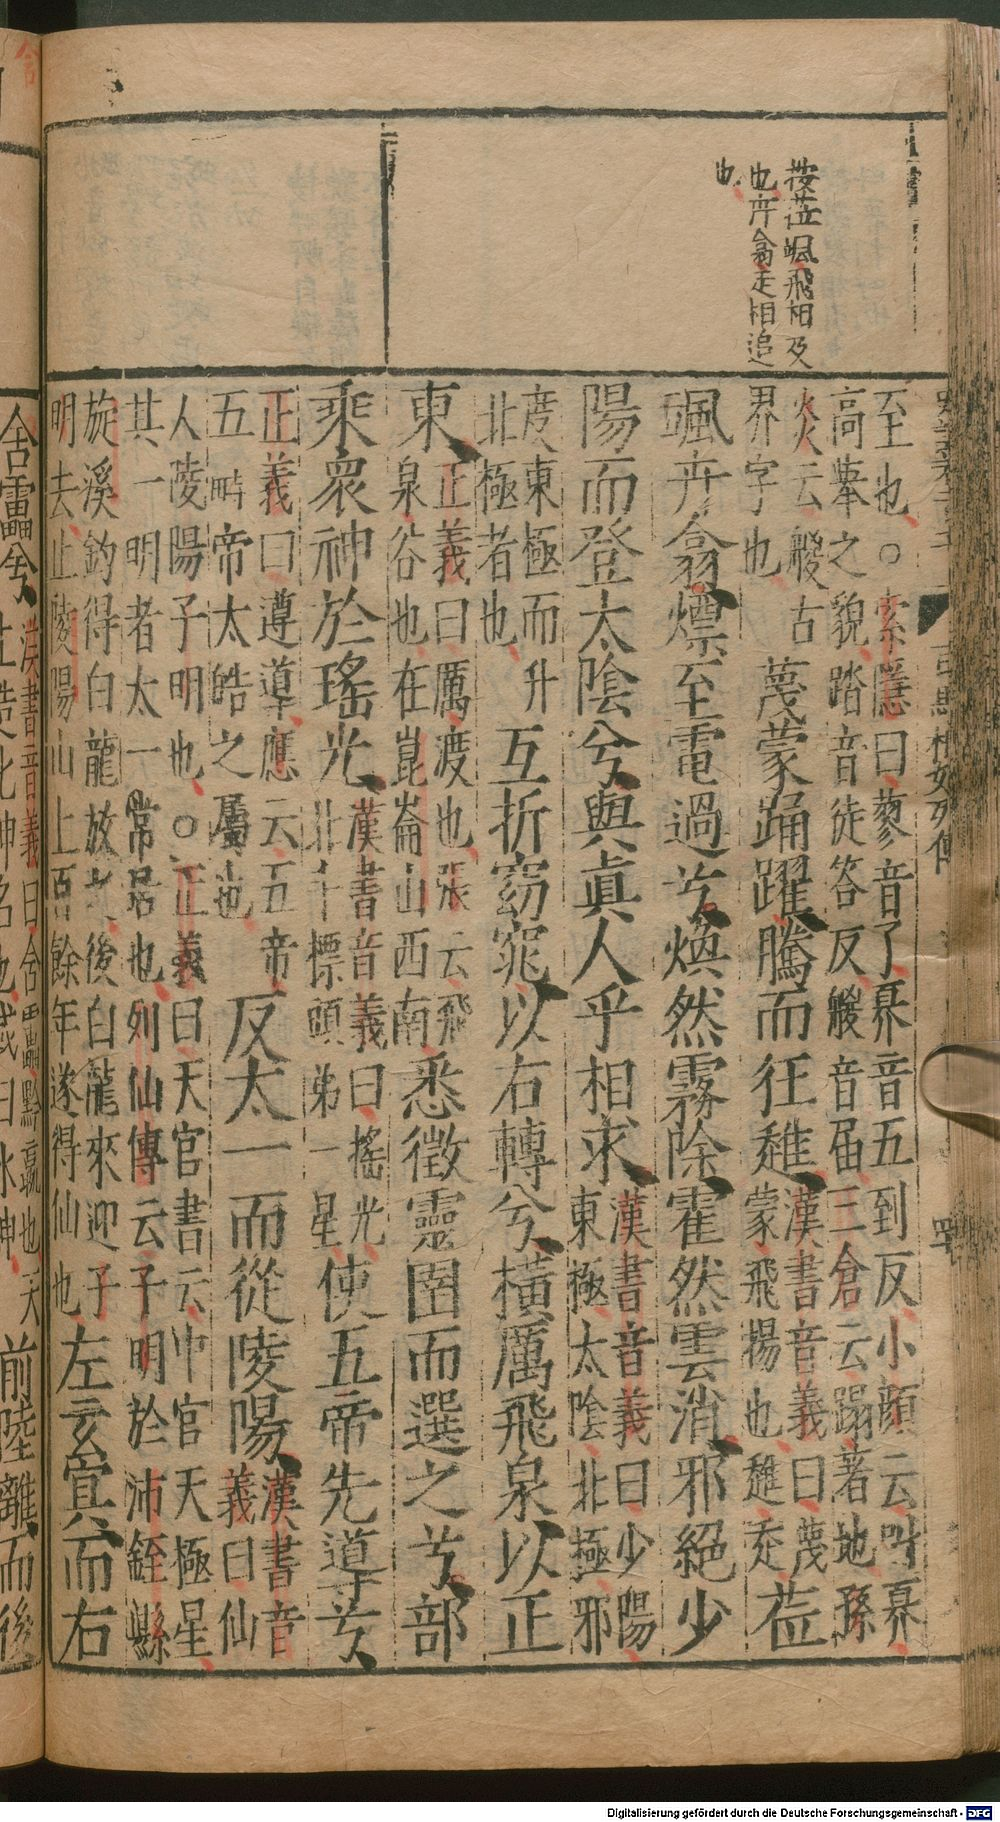 按莅颯飛相及
也卉翕走相追
也
司馬相如列傳
至也○索隱曰蓼音了奡音五到反小顏云叫奡
高舉之貌踏音徒答反艐音届三倉云蹋著地孫
炎云艐古
界字也
蔑蒙踊躍騰而狂趡
漢書音義曰蔑
蒙飛揚也趡走
莅
颯卉翕熛至電過兮煥然霧除霍然雲消邪絕少
陽而登太陰兮與眞人乎相求
漢書音義曰少陽
東極太陰北極邪
度東極而升
北極者也
互折窈窕以右轉兮橫厲飛泉以正
東
正義曰厲渡也張云飛
泉谷也在崑崙山西南
悉徵靈圉而選之兮部
乘衆神於瑤光
漢書音義曰搖光
北斗標頭弟一星
使五帝先導兮
正義曰遵導應云五帝
五畤帝太皓之屬也
反太一而從陵陽
漢書音
義曰仙
人陵陽子明也○正義曰天官書云中官天極星
其一明者太一常居也列仙傳云子明於沛銍縣
旋溪釣得白龍放之後白龍來迎子
明去止陵陽山上百餘年遂得仙也
左玄冥而右
含靁兮
漢書音義曰含靁黔羸也天
上造化神名也或曰水神
前陸離而後
Digitalisierung gefördert durch die Deutsche Forschungsgemeinschaft - DFG